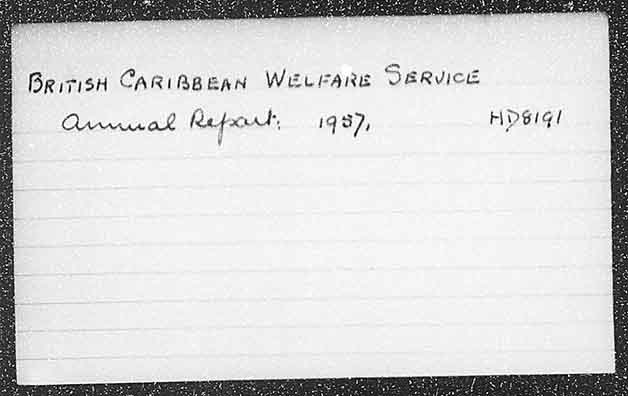 BRITISH CARIBBEAN WELFARE SERVICE
Annual Report. 1957. HD8191